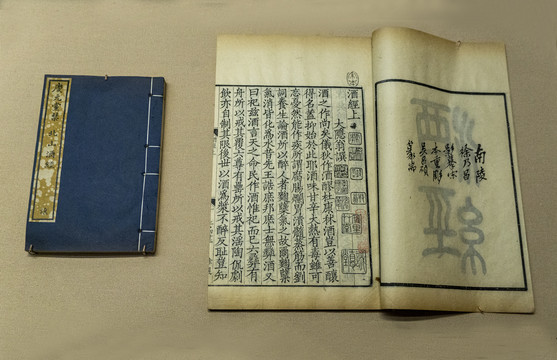 酒經
南陵
徐乃昌
本重彫
酒經上
大隱翁撰
酒之作尚矣儀狄作酒醪杜康秫酒豈以善釀
得名蓋抑始於此耶酒味甘辛大熱有毒雖可
忘憂然能作疾所謂腐腸爛胃潰髓蒸筋而劉
詞養生論酒所以醉人者麴糵氣之故爾麴糵
氣消皆化為水昔先王誥庶邦庶士無彝酒又
曰祀茲酒言天之命民作酒惟祀而已六彝有
舟所以戒其覆六尊有罍所以戒其淫陶侃劇
飲亦自制其限後世以酒為漿不醉反恥豈知
北山酒